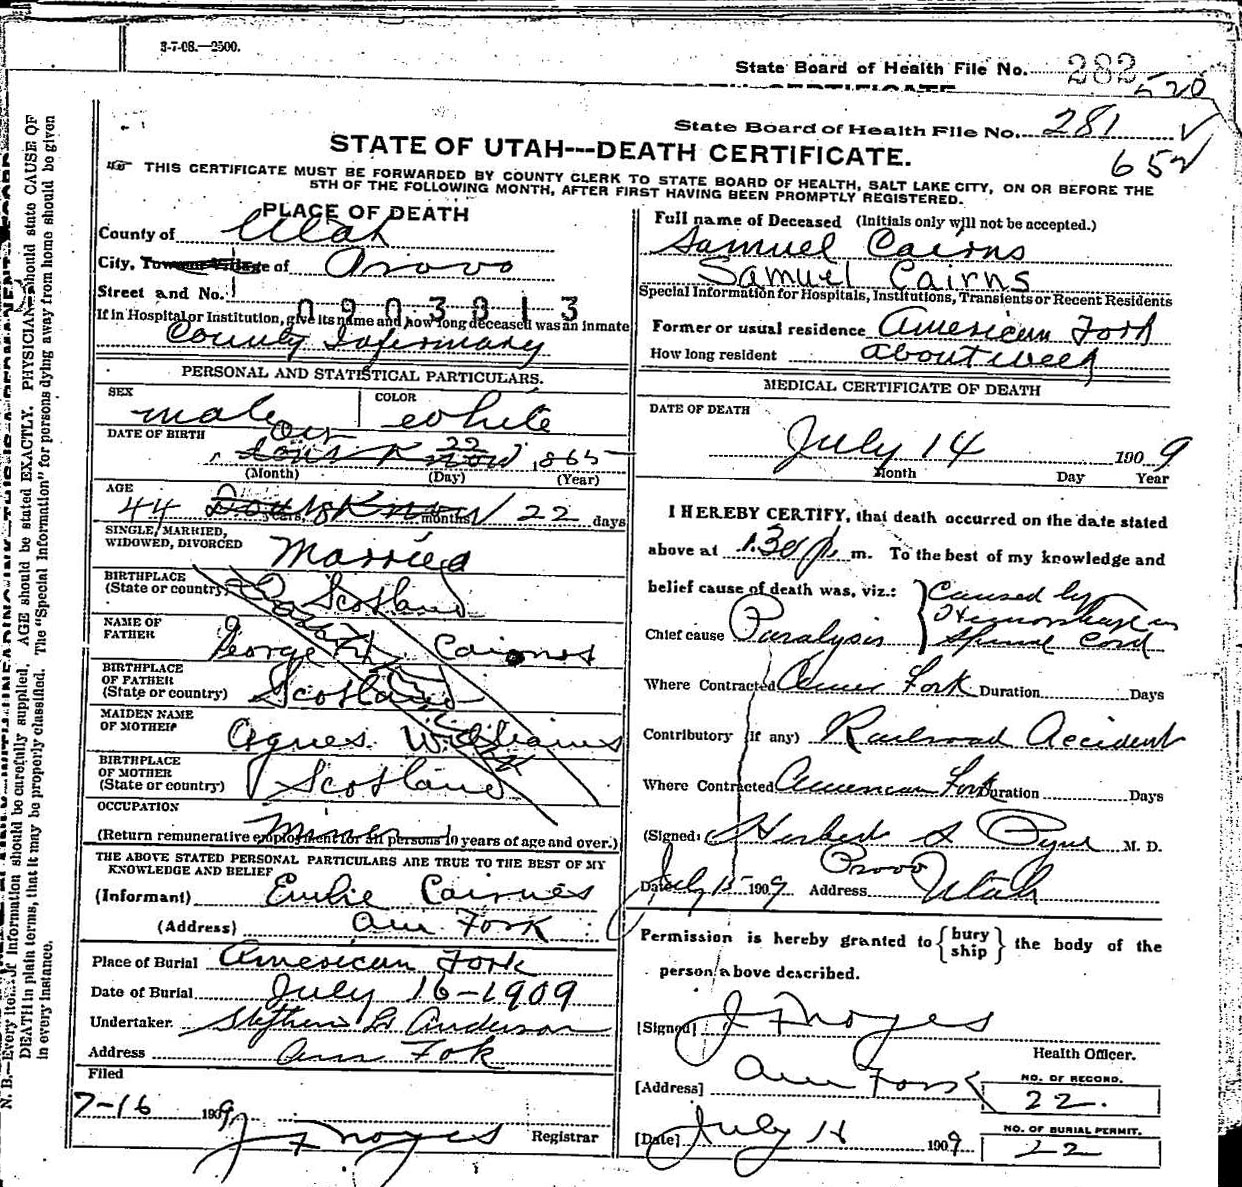 3-7-08.—2500.
State Board of Health File No. 282
520
State Board of Health File No. 281 ✓
652
STATE OF UTAH---DEATH CERTIFICATE.
THIS CERTIFICATE MUST BE FORWARDED BY COUNTY CLERK TO STATE BOARD OF HEALTH, SALT LAKE CITY, ON OR BEFORE THE
5TH OF THE FOLLOWING MONTH, AFTER FIRST HAVING BEEN PROMPTLY REGISTERED.
PLACE OF DEATH
County of Utah
City, Town or Village of Provo
Street and No.
0903813
If in Hospital or Institution, give its name and how long deceased was an inmate
County Infirmary
PERSONAL AND STATISTICAL PARTICULARS.
SEX male
COLOR white
DATE OF BIRTH Dont Know 22 1865
(Month) (Day) (Year)
AGE
44 years, Dont Know months 22 days
SINGLE, MARRIED,
WIDOWED, DIVORCED Married
BIRTHPLACE
(State or country) Scotland
NAME OF
FATHER George Cairnes
BIRTHPLACE
OF FATHER
(State or country) Scotland
MAIDEN NAME
OF MOTHER Agnes Williams
BIRTHPLACE
OF MOTHER
(State or country) Scotland
OCCUPATION
Miner
(Return remunerative employment for all persons 10 years of age and over.)
THE ABOVE STATED PERSONAL PARTICULARS ARE TRUE TO THE BEST OF MY
KNOWLEDGE AND BELIEF
(Informant) Emilie Cairnes
(Address) Am. Fork
Place of Burial American Fork
Date of Burial July 16-1909
Undertaker Stephen L Anderson
Address Am Fok
Filed
7-16 1909
J F Noyes Registrar
Full name of Deceased (Initials only will not be accepted.)
Samuel Cairns
Samuel Cairns
Special Information for Hospitals, Institutions, Transients or Recent Residents
Former or usual residence American Fork
How long resident about week
MEDICAL CERTIFICATE OF DEATH
DATE OF DEATH
July 14 1909
Month Day Year
I HEREBY CERTIFY, that death occurred on the date stated
above at 1.30 p. m. To the best of my knowledge and
belief cause of death was, viz.:
Chief cause Paralysis { Caused by
Hemorrhage in
Spinal Cord
Where Contracted Amer Fork Duration Days
Contributory (if any) Railroad Accident
Where Contracted American Fork Duration Days
(Signed) Herbert S Pyne M. D.
Date July 15 1909 Address Provo
Utah
Permission is hereby granted to {bury
ship} the body of the
person above described.
[Signed] J F Noyes
Health Officer.
[Address] Am Fork
NO. OF RECORD.
22.
[Date] July 16 1909
NO. OF BURIAL PERMIT.
22
N. B.—Every item of information should be carefully supplied. AGE should be stated EXACTLY. PHYSICIAN should state CAUSE OF
DEATH in plain terms, that it may be properly classified. The "Special Information" for persons dying away from home should be given
in every instance.